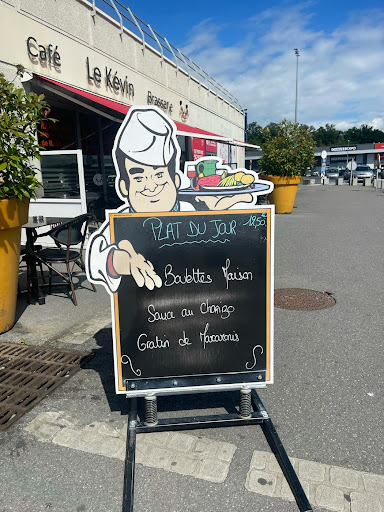 Café
Le Kévin
Brasserie
PLAT DU JOUR
Boulettes Maison
Sauce au Chorizo
Gratin de Macaronis